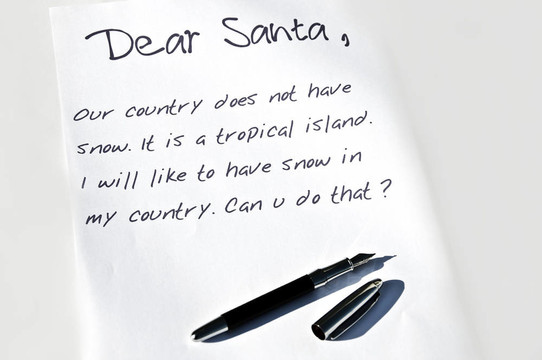 Dear Santa,
Our country does not have
snow. It is a tropical island.
I will like to have snow in
my country. Can u do that?